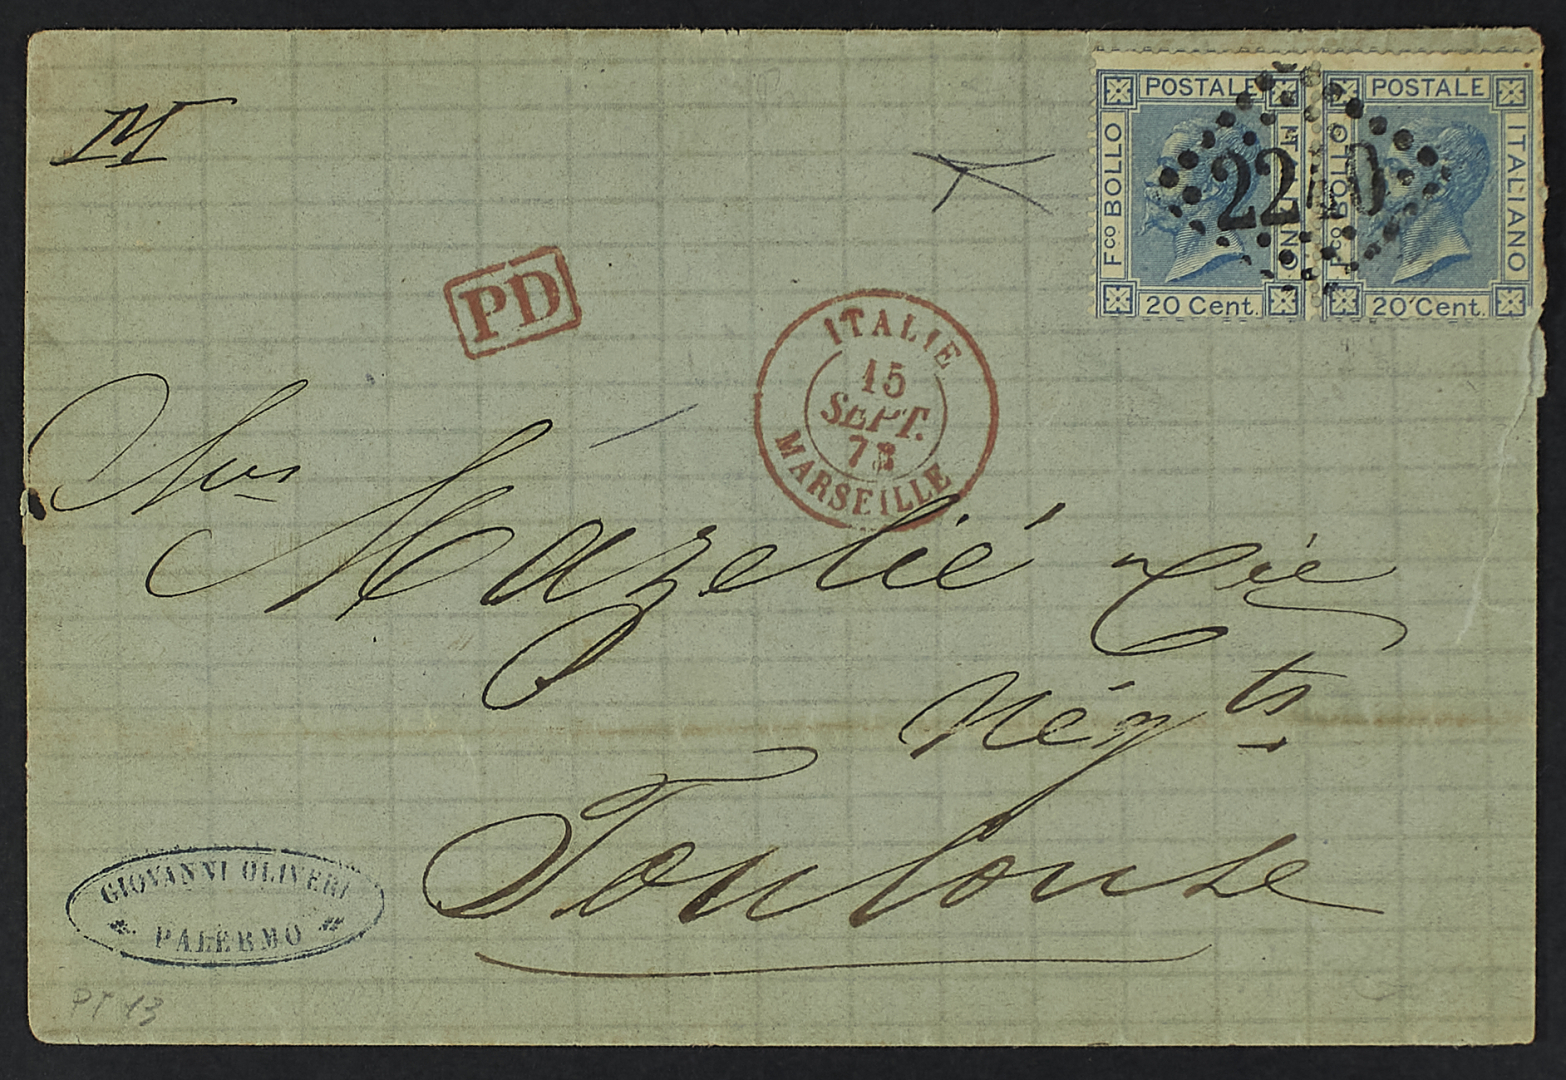 M
POSTALE
Fco BOLLO
20 Cent.
POSTALE
Fco BOLLO
ITALIANO
20 Cent.
2240
PD
ITALIE
15
SEPT.
73
MARSEILLE
Mrs
Mazelié & Cie
Négts
Toulouse
GIOVANNI OLIVERI
PALERMO
PT 13